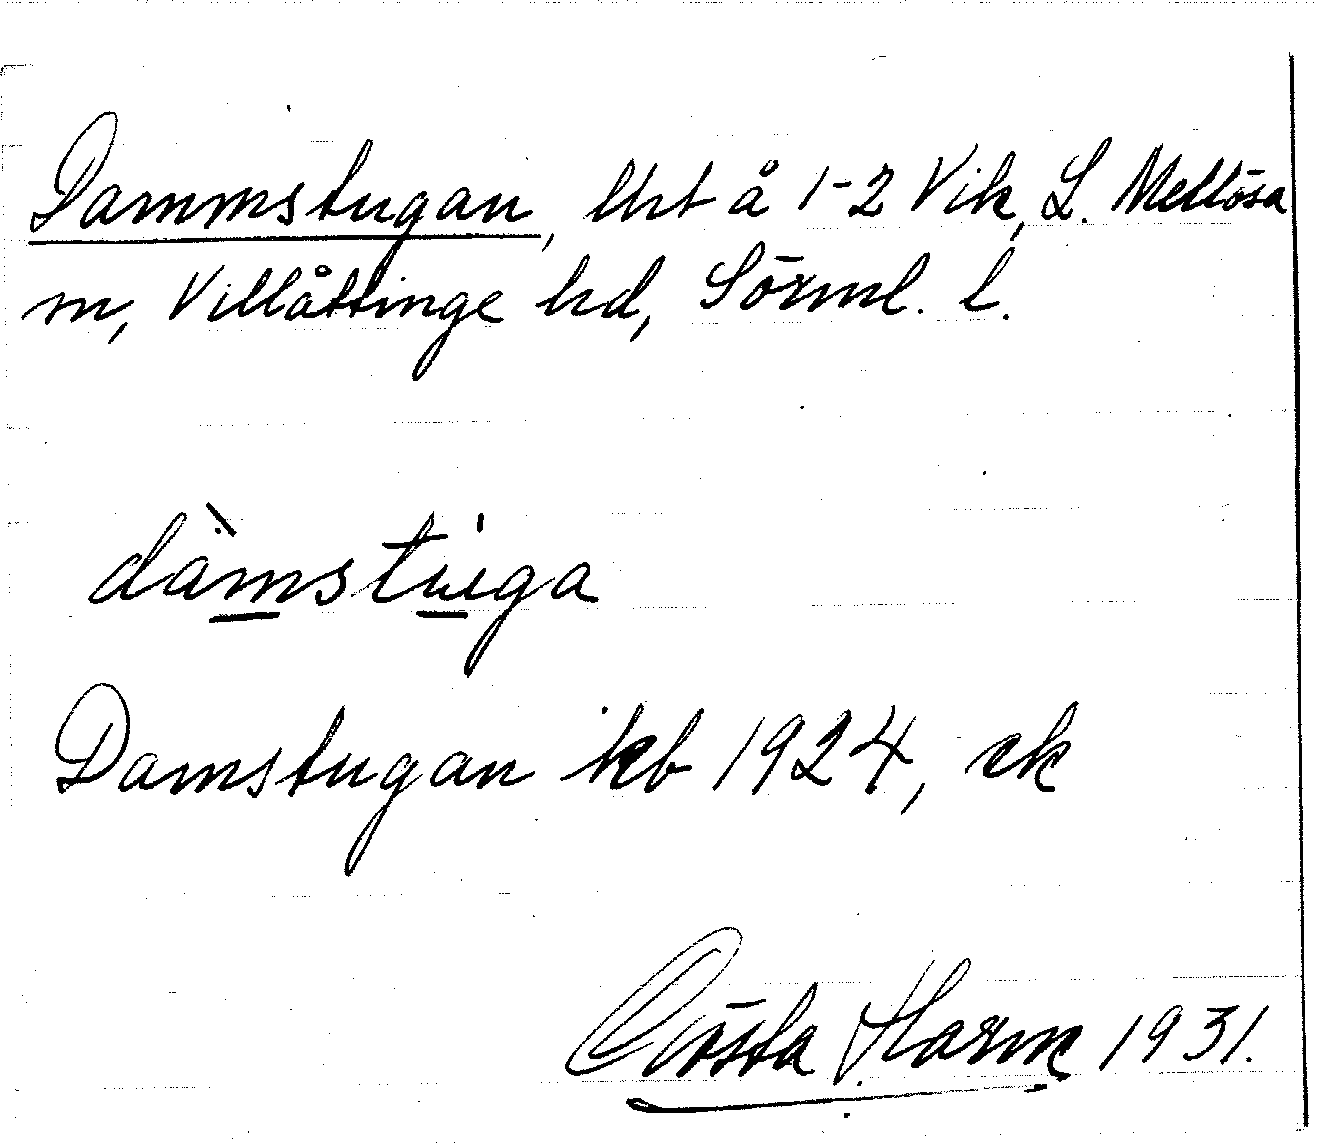 Dammstugan, lht å 1-2 Vik, L. Mellösa
sn, Villåttinge hd, Sörml. l.
dàmstu̇ga
Damstugan kb 1924, ek
Gösta Harm 1931.